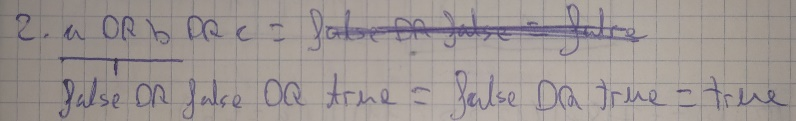 2. a OR b OR c = false OR false = false
false OR false OR true = false OR true = true